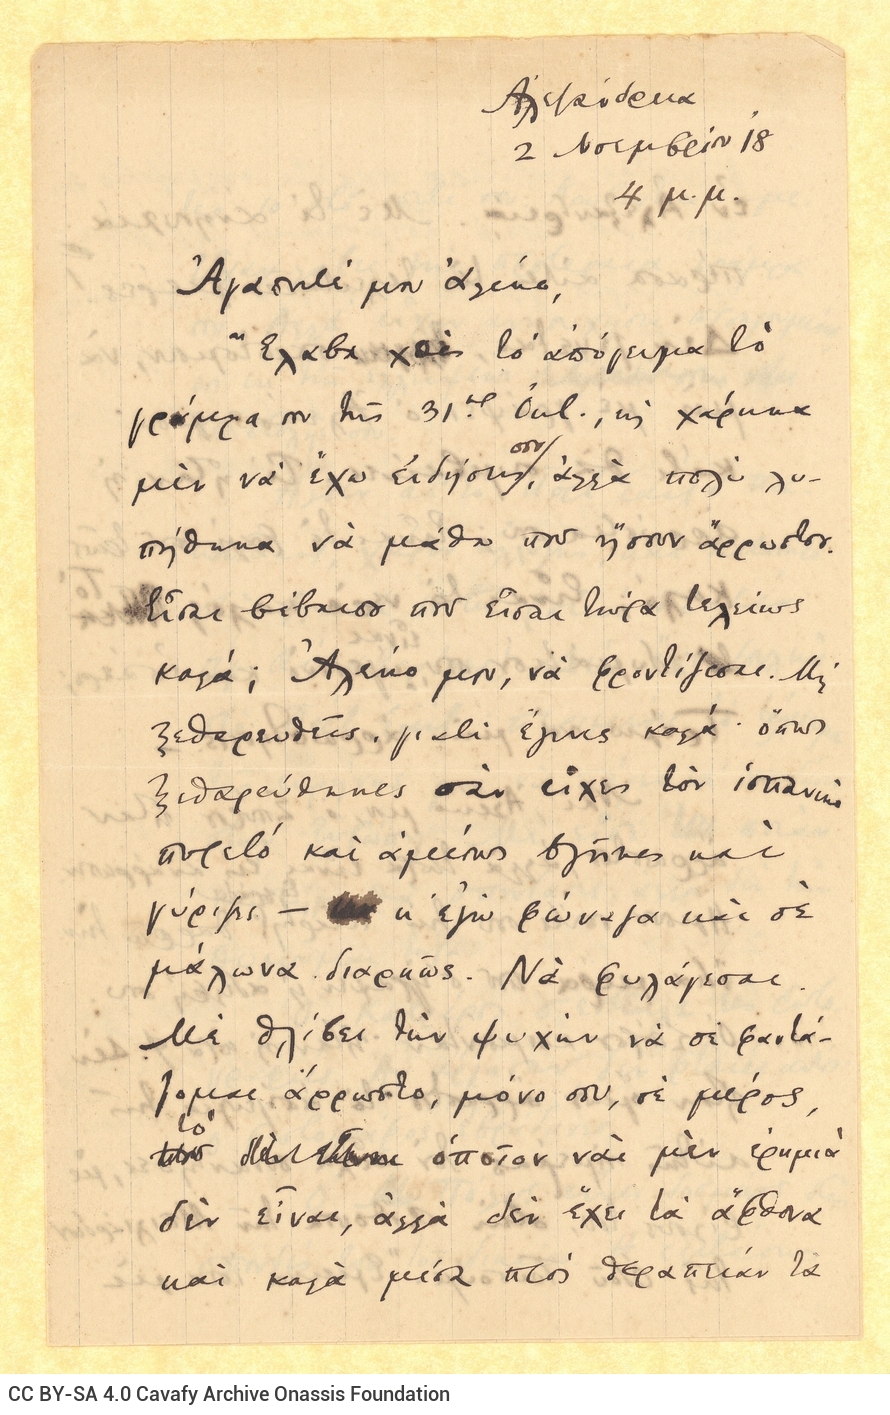 Αλεξάνδρεια
2 Νοεμβρίου '18
4 μ.μ.
Ἀγαπητέ μου Ἀλέκο,
Ἔλαβα χθὲς τὸ ἀπόγευμα τὸ
γράμμα σου τῆς 31ης Ὀκτ., κ᾽ χάρηκα
μὲν νὰ ἔχω εἰδήσεις σου, ἀλλὰ πολὺ λυ-
πήθηκα νὰ μάθω ποῦ ἤσουν ἄρρωστος.
Εἶσαι βέβαιος ποῦ εἶσαι τώρα τελείως
καλά; Ἀλέκο μου, νὰ φροντίζεσαι. Μὴ
ξεθαρευθῇς, γιατὶ ἔγινες καλά· ὅπως
ξεθαρεύθηκες σὰν εἶχες τὸν ἱσπανικὸ
πυρετό καὶ ἀμέσως βγῆκες καὶ
γύριζες — κ᾽ ἐγὼ φώναζα καὶ σὲ
μάλωνα διαρκῶς. Νὰ φυλάγεσαι.
Μὲ θλίβει τὴν ψυχὴν νὰ σὲ φαντά-
ζομαι ἄρρωστο, μόνο σου, σὲ μέρος,
τὸ ὁποῖον ναὶ μὲν ἐρημιὰ
δὲν εἶναι, ἀλλὰ δὲν ἔχει τὰ ἄφθονα
καὶ καλὰ μέσα πρὸς θεραπείαν τὰ
CC BY-SA 4.0 Cavafy Archive Onassis Foundation